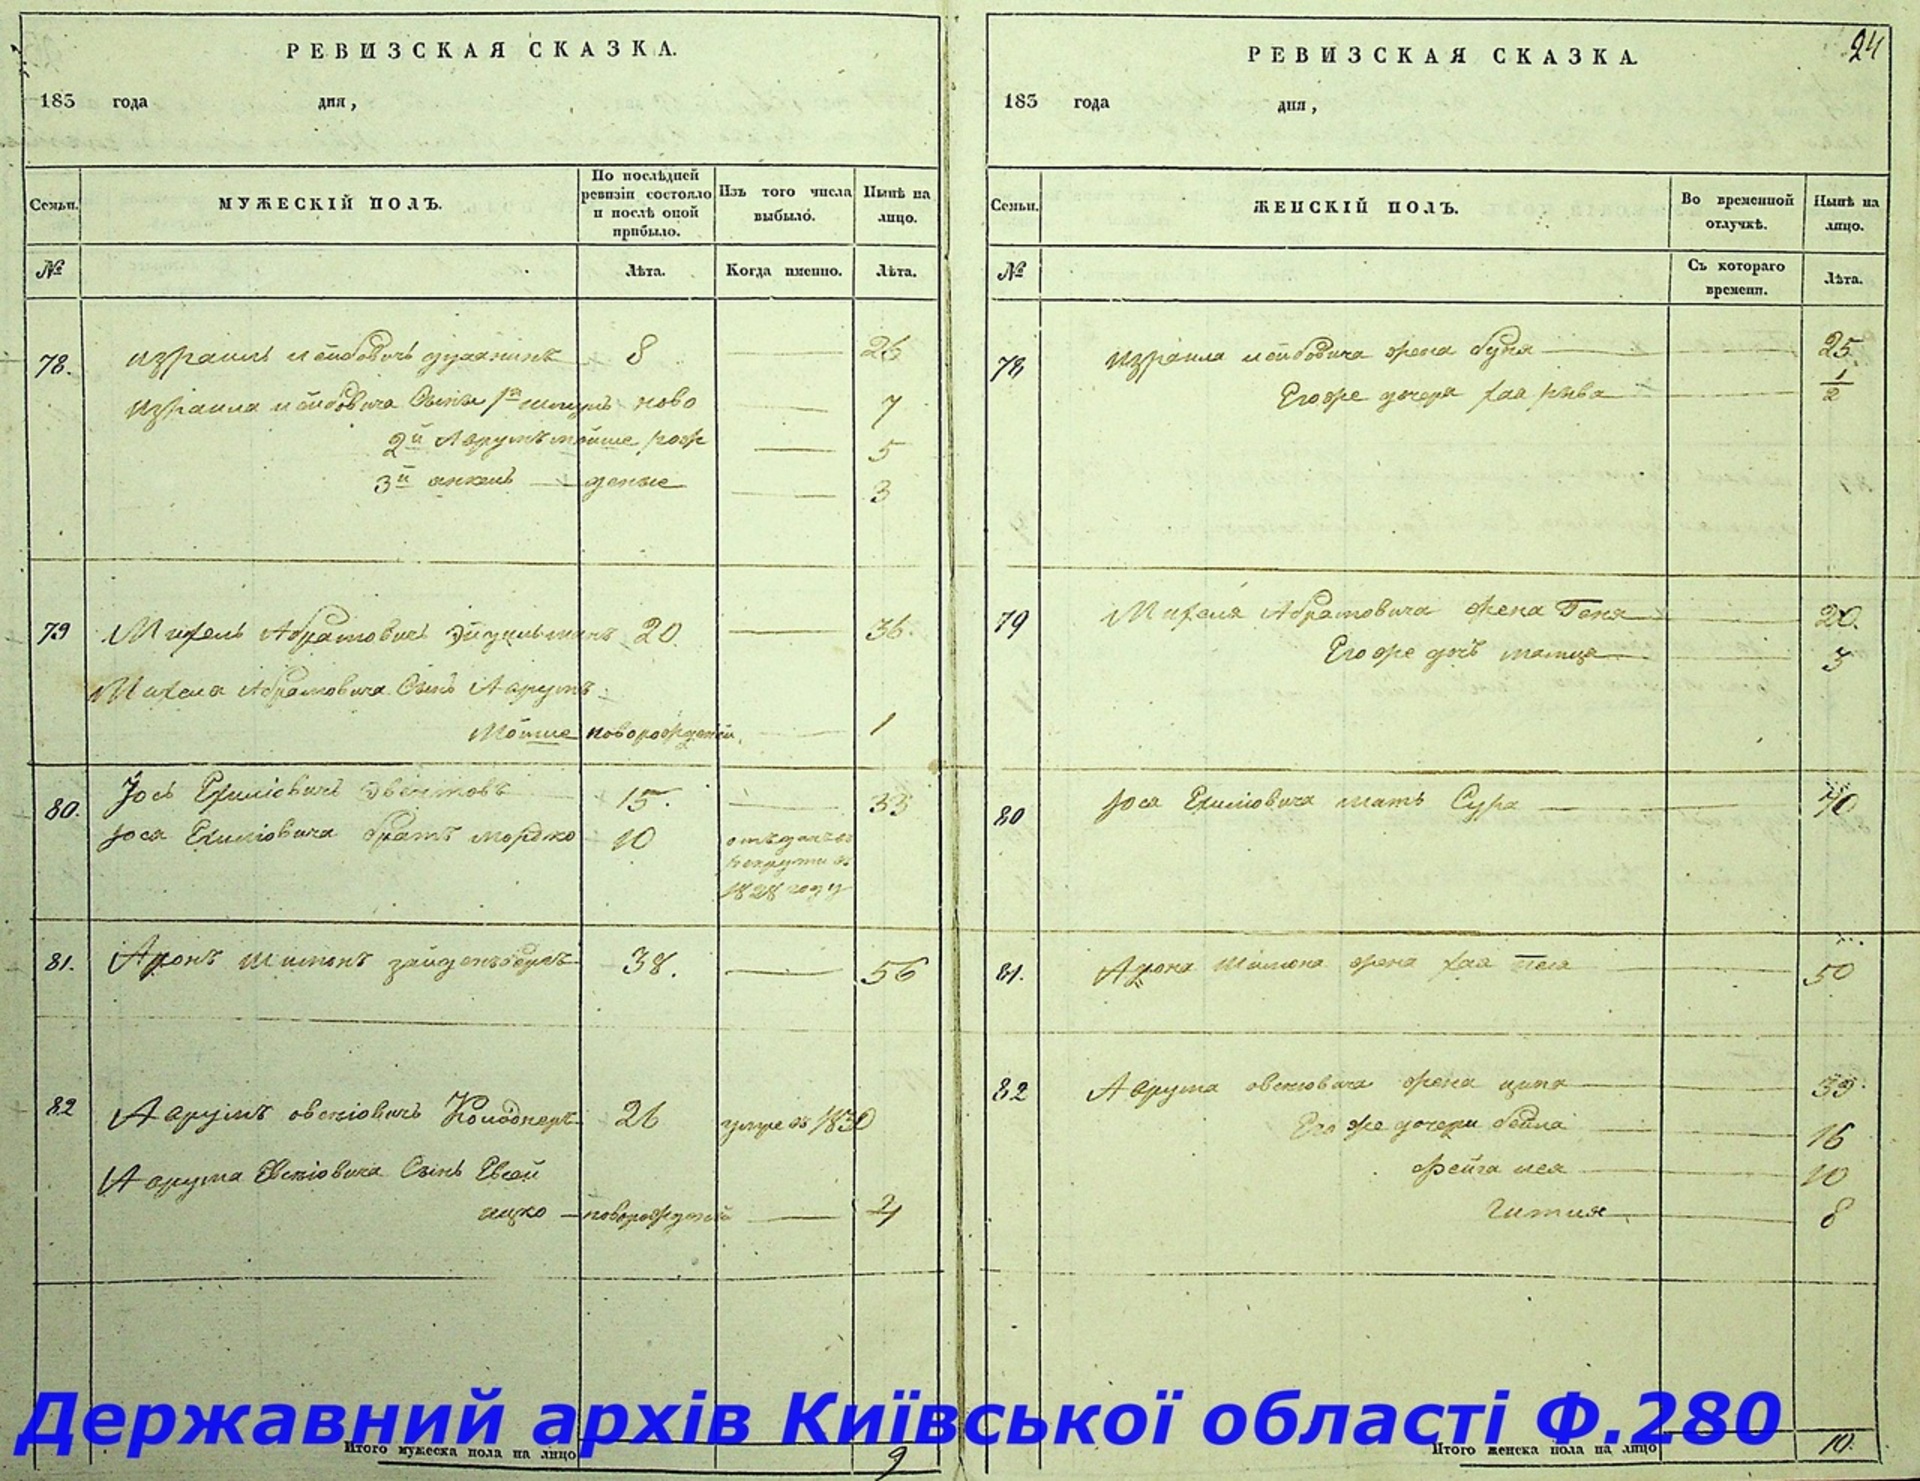 РЕВИЗСКАЯ СКАЗКА.
183 года дня,
Семьи.
МУЖЕСКІЙ ПОЛЪ.
По послѣдней ревизіи состояло и послѣ оной прибыло.
Изъ того числа выбыло.
Нынѣ на лицо.
№
Лѣта.
Когда именно.
Лѣта.
78. Израиль Лейбовичъ 8 26
Израила Лейбовича Сынъ 1й ново 7
2й Аврумъ Мойше рож 5
3й Янкель деные 3
79 Михель Абрамовичъ 20 36.
Михеля Абрамовича Сынъ Аврумъ
Мойше новорожденый 1
80. Іось 15. 33
Іося братъ Мордко 10 отъданъ въ рекруты въ 1828 году
81. Аронъ Шимонъ Зайденъберъ 38. 56
82 Аврумъ овсіовичъ 26 умре въ 1830
Аврума Евсіовича Сынъ Евсей
ицко новорожденый 4
Итого мужеска пола на лицо 9
РЕВИЗСКАЯ СКАЗКА. 24
183 года дня,
Семьи.
ЖЕНСКІЙ ПОЛЪ.
Во временной отлучкѣ.
Нынѣ на лицо.
№
Съ котораго времени.
Лѣта.
78 Израила Лейбовича жена буня 25
Егоже дочеря хая рыва 1/2
79 Михеля Абрамовича жена Геня 20.
Егоже дочь 3
80 Іося мать Сура 70
81. Арона Шимона жена хая песя 50
82 Аврума овсіовича жена ципя 39.
Его же дочери бейла 16
Фейга лея 10
Гитля 8
Итого женска пола на лицо 10.
Державний архів Київської області Ф.280